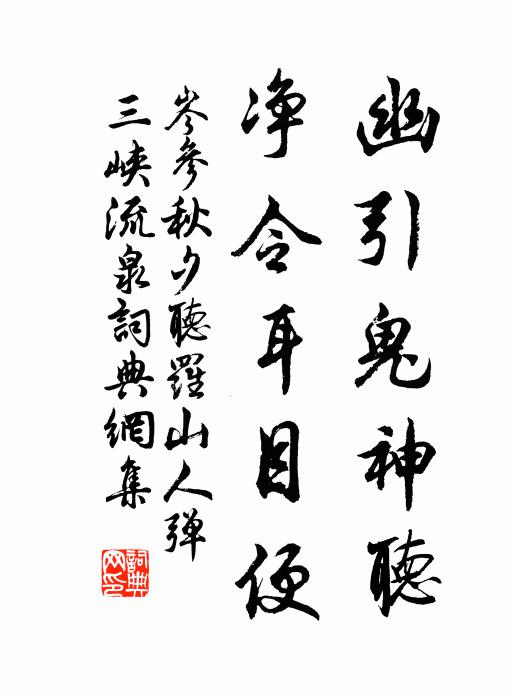 幽引鬼神聽
净令耳目便
岑參秋夕聽羅山人彈
三峽流泉詞典網集
詞典網印